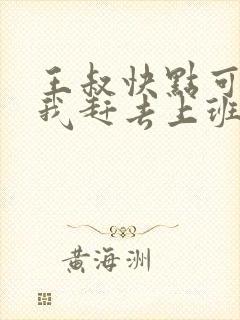 王叔快點可
我赶去上班
黄海洲